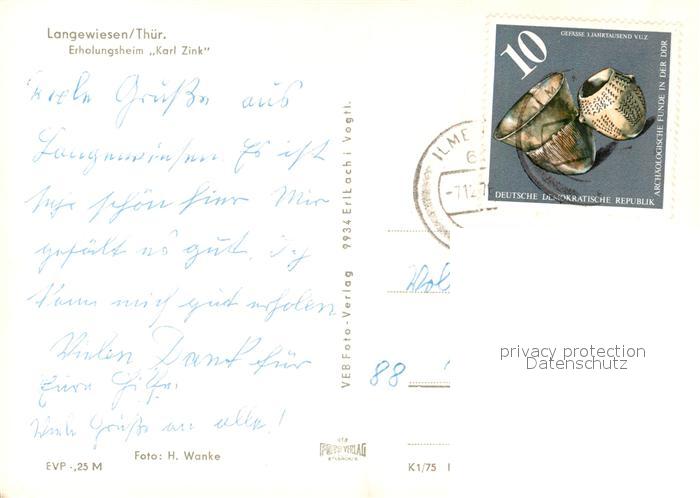 Langewiesen/Thür.
Erholungsheim „Karl Zink"
Viele Grüße aus
Langewiesen. Es ist
sehr schön hier Mir
gefällt es gut. Ich
kann mich gut erholen
Vielen Dank für
Eure Hilfe.
Viele Grüße an alle!
EVP -,25 M
Foto: H. Wanke
VEB Foto-Verlag 9934 Erlbach i Vogtl.
FOTO-VERLAG
ERLBACH
K1/75
10
GEFÄSSE 3. JAHRTAUSEND V. U. Z.
ARCHÄOLOGISCHE FUNDE IN DER DDR
DEUTSCHE DEMOKRATISCHE REPUBLIK
ILME
6
-7.12.7
88
privacy protection
Datenschutz